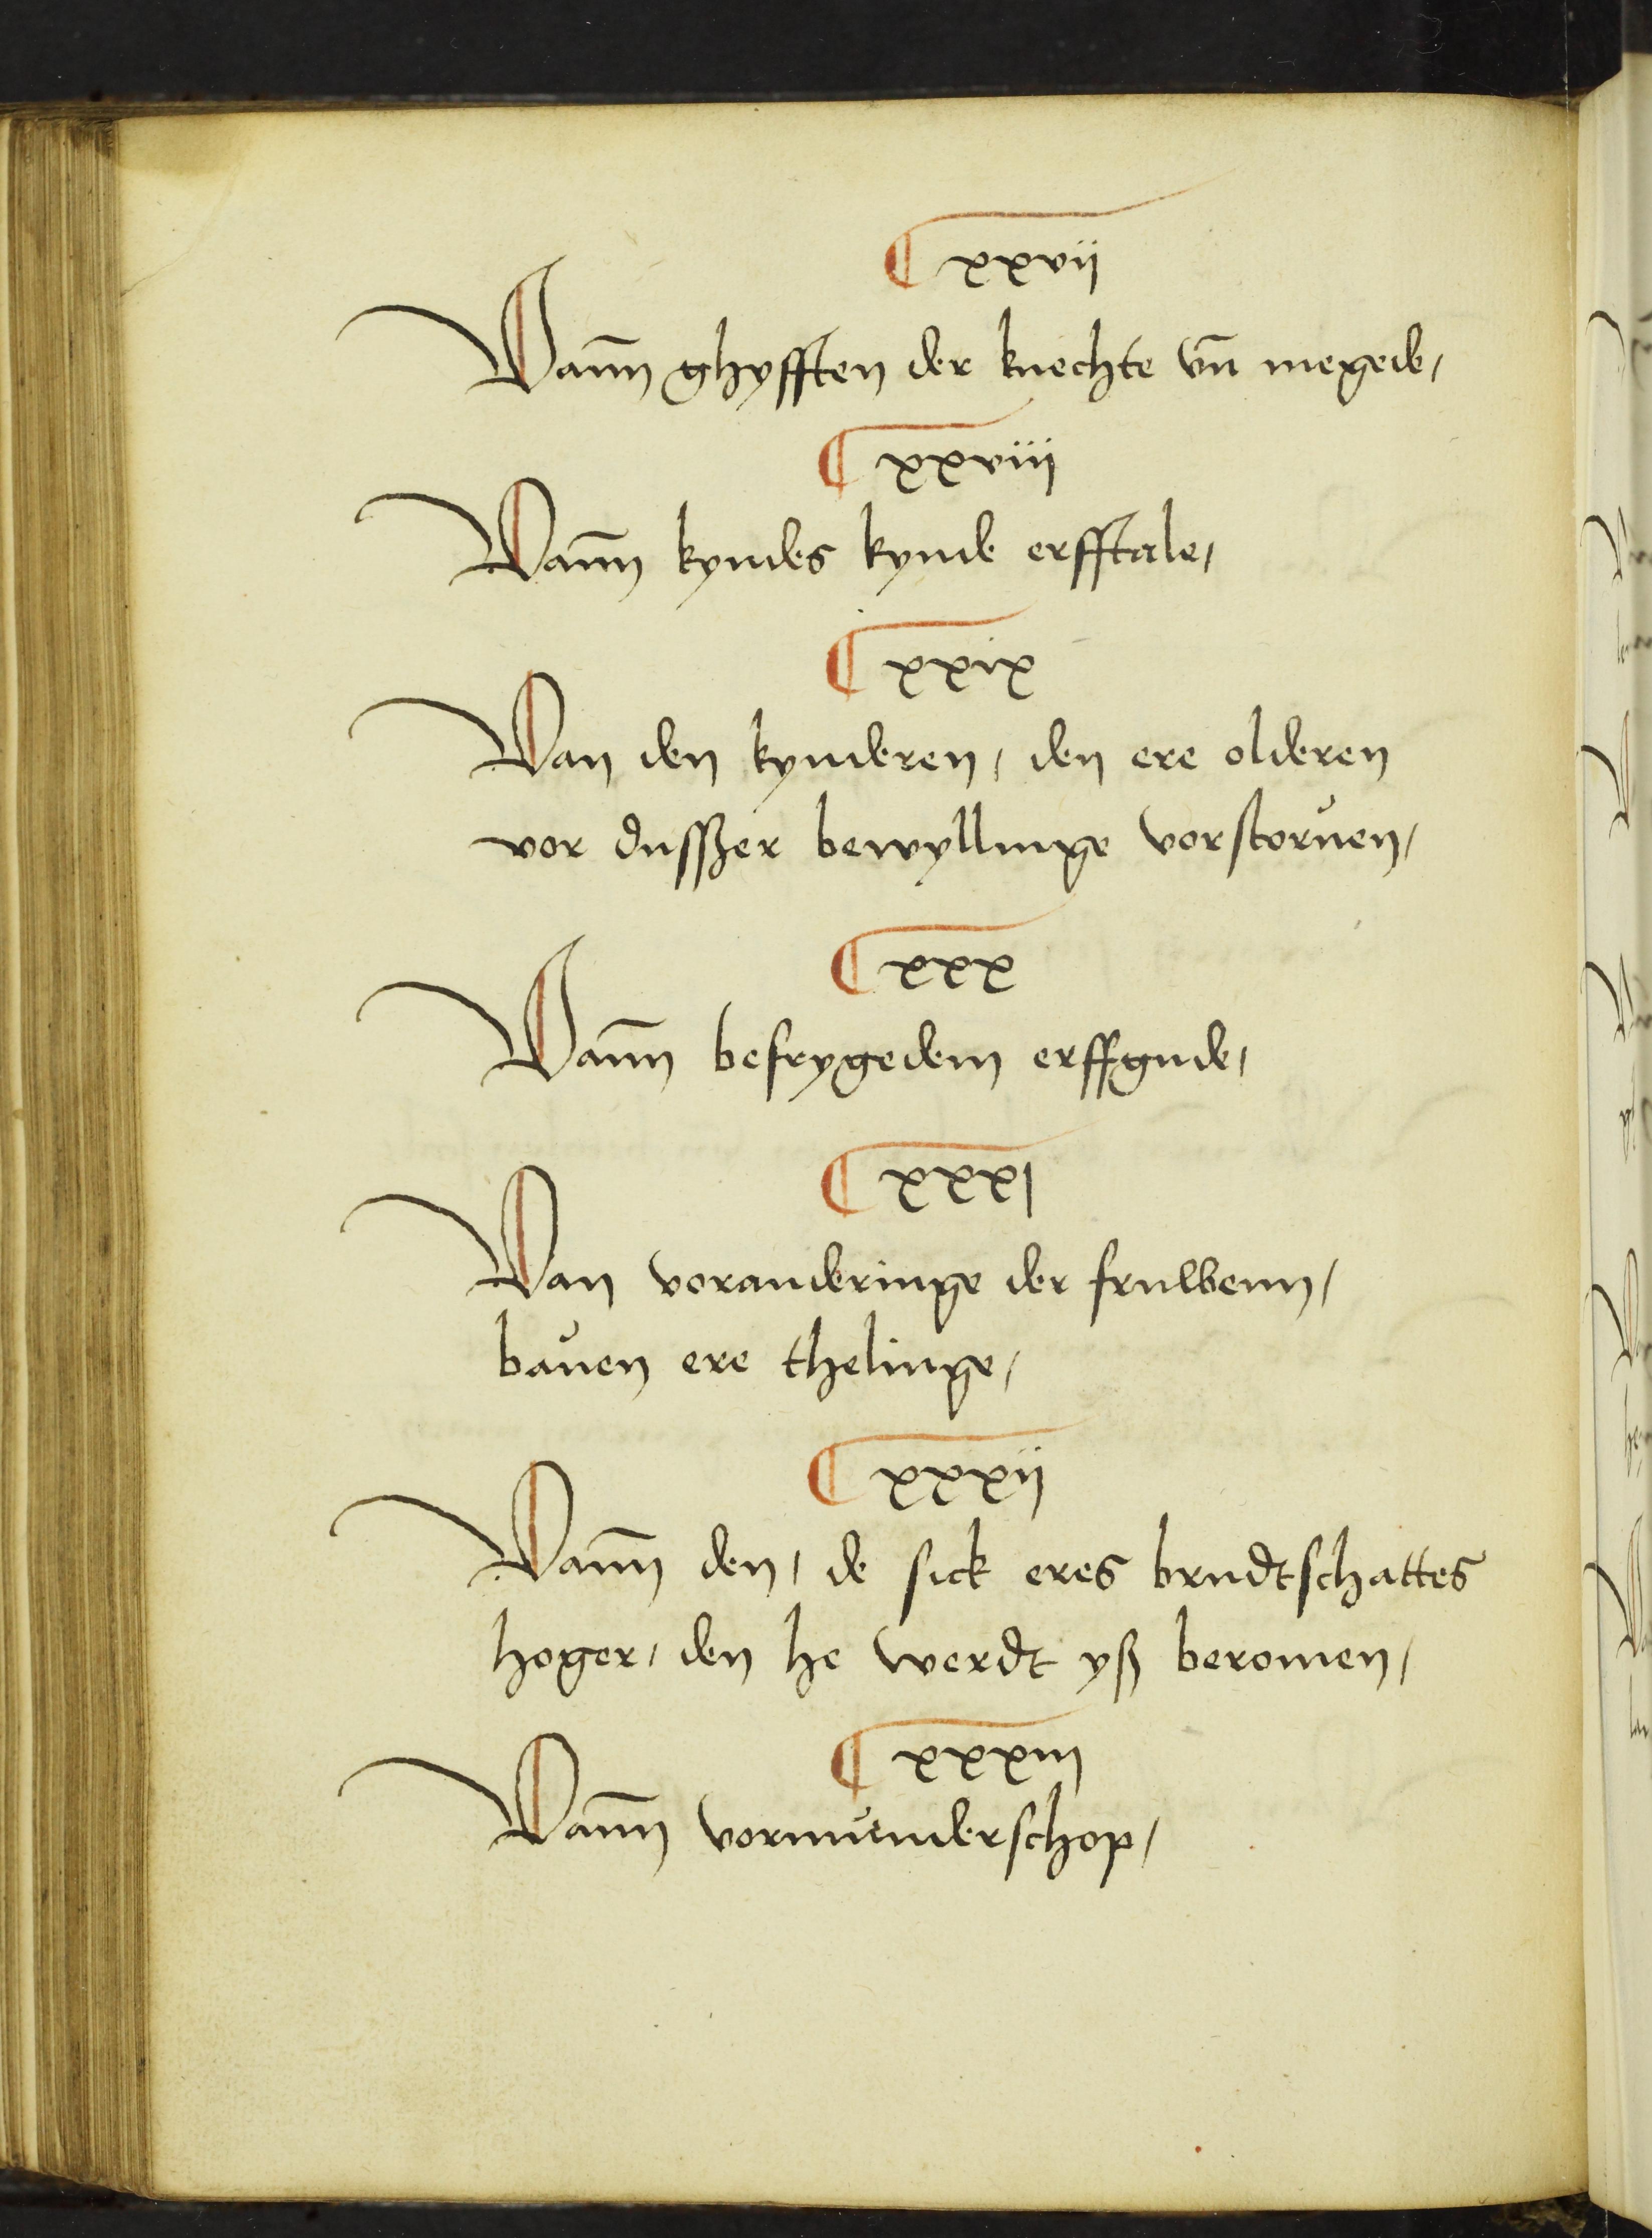 ¶ xxvii
Vann̄ ghyfften der knechte vn̄ megede/
¶ xxviii
Vann̄ kyndes kynde erfftale/
¶ xxix
Van den kynderen/ den ere olderen
vor dusszer bewyllinge vorstoruen/
¶ xxx
Vann̄ befrygedem erffgude/
¶ xxxi
Van voranderinge der fruwenn/
bauen ere thelinge/
¶ xxxii
Vann̄ den/ de sick eres brudtschattes
hoger/ den he werdt yß beromen/
¶ xxxiii
Vann̄ vormunderschop/